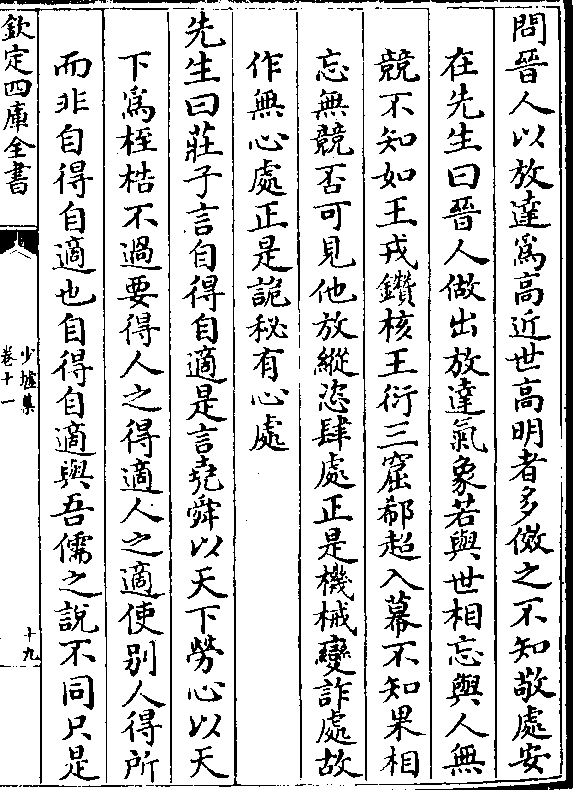 問晉人以放達爲高近世高明者多傚之不知敬處安
在先生曰晉人做出放達氣象若與世相忘與人無
競不知如王戎鑽核王衍三窟郗超入幕不知果相
忘無競否可見他放縱恣肆處正是機械變詐處故
作無心處正是詭秘有心處
先生曰莊子言自得自適是言堯舜以天下勞心以天
下爲桎梏不過要得人之得適人之適使别人得所
而非自得自適也自得自適與吾儒之說不同只是
欽定四庫全書
少墟集
卷十一
十九